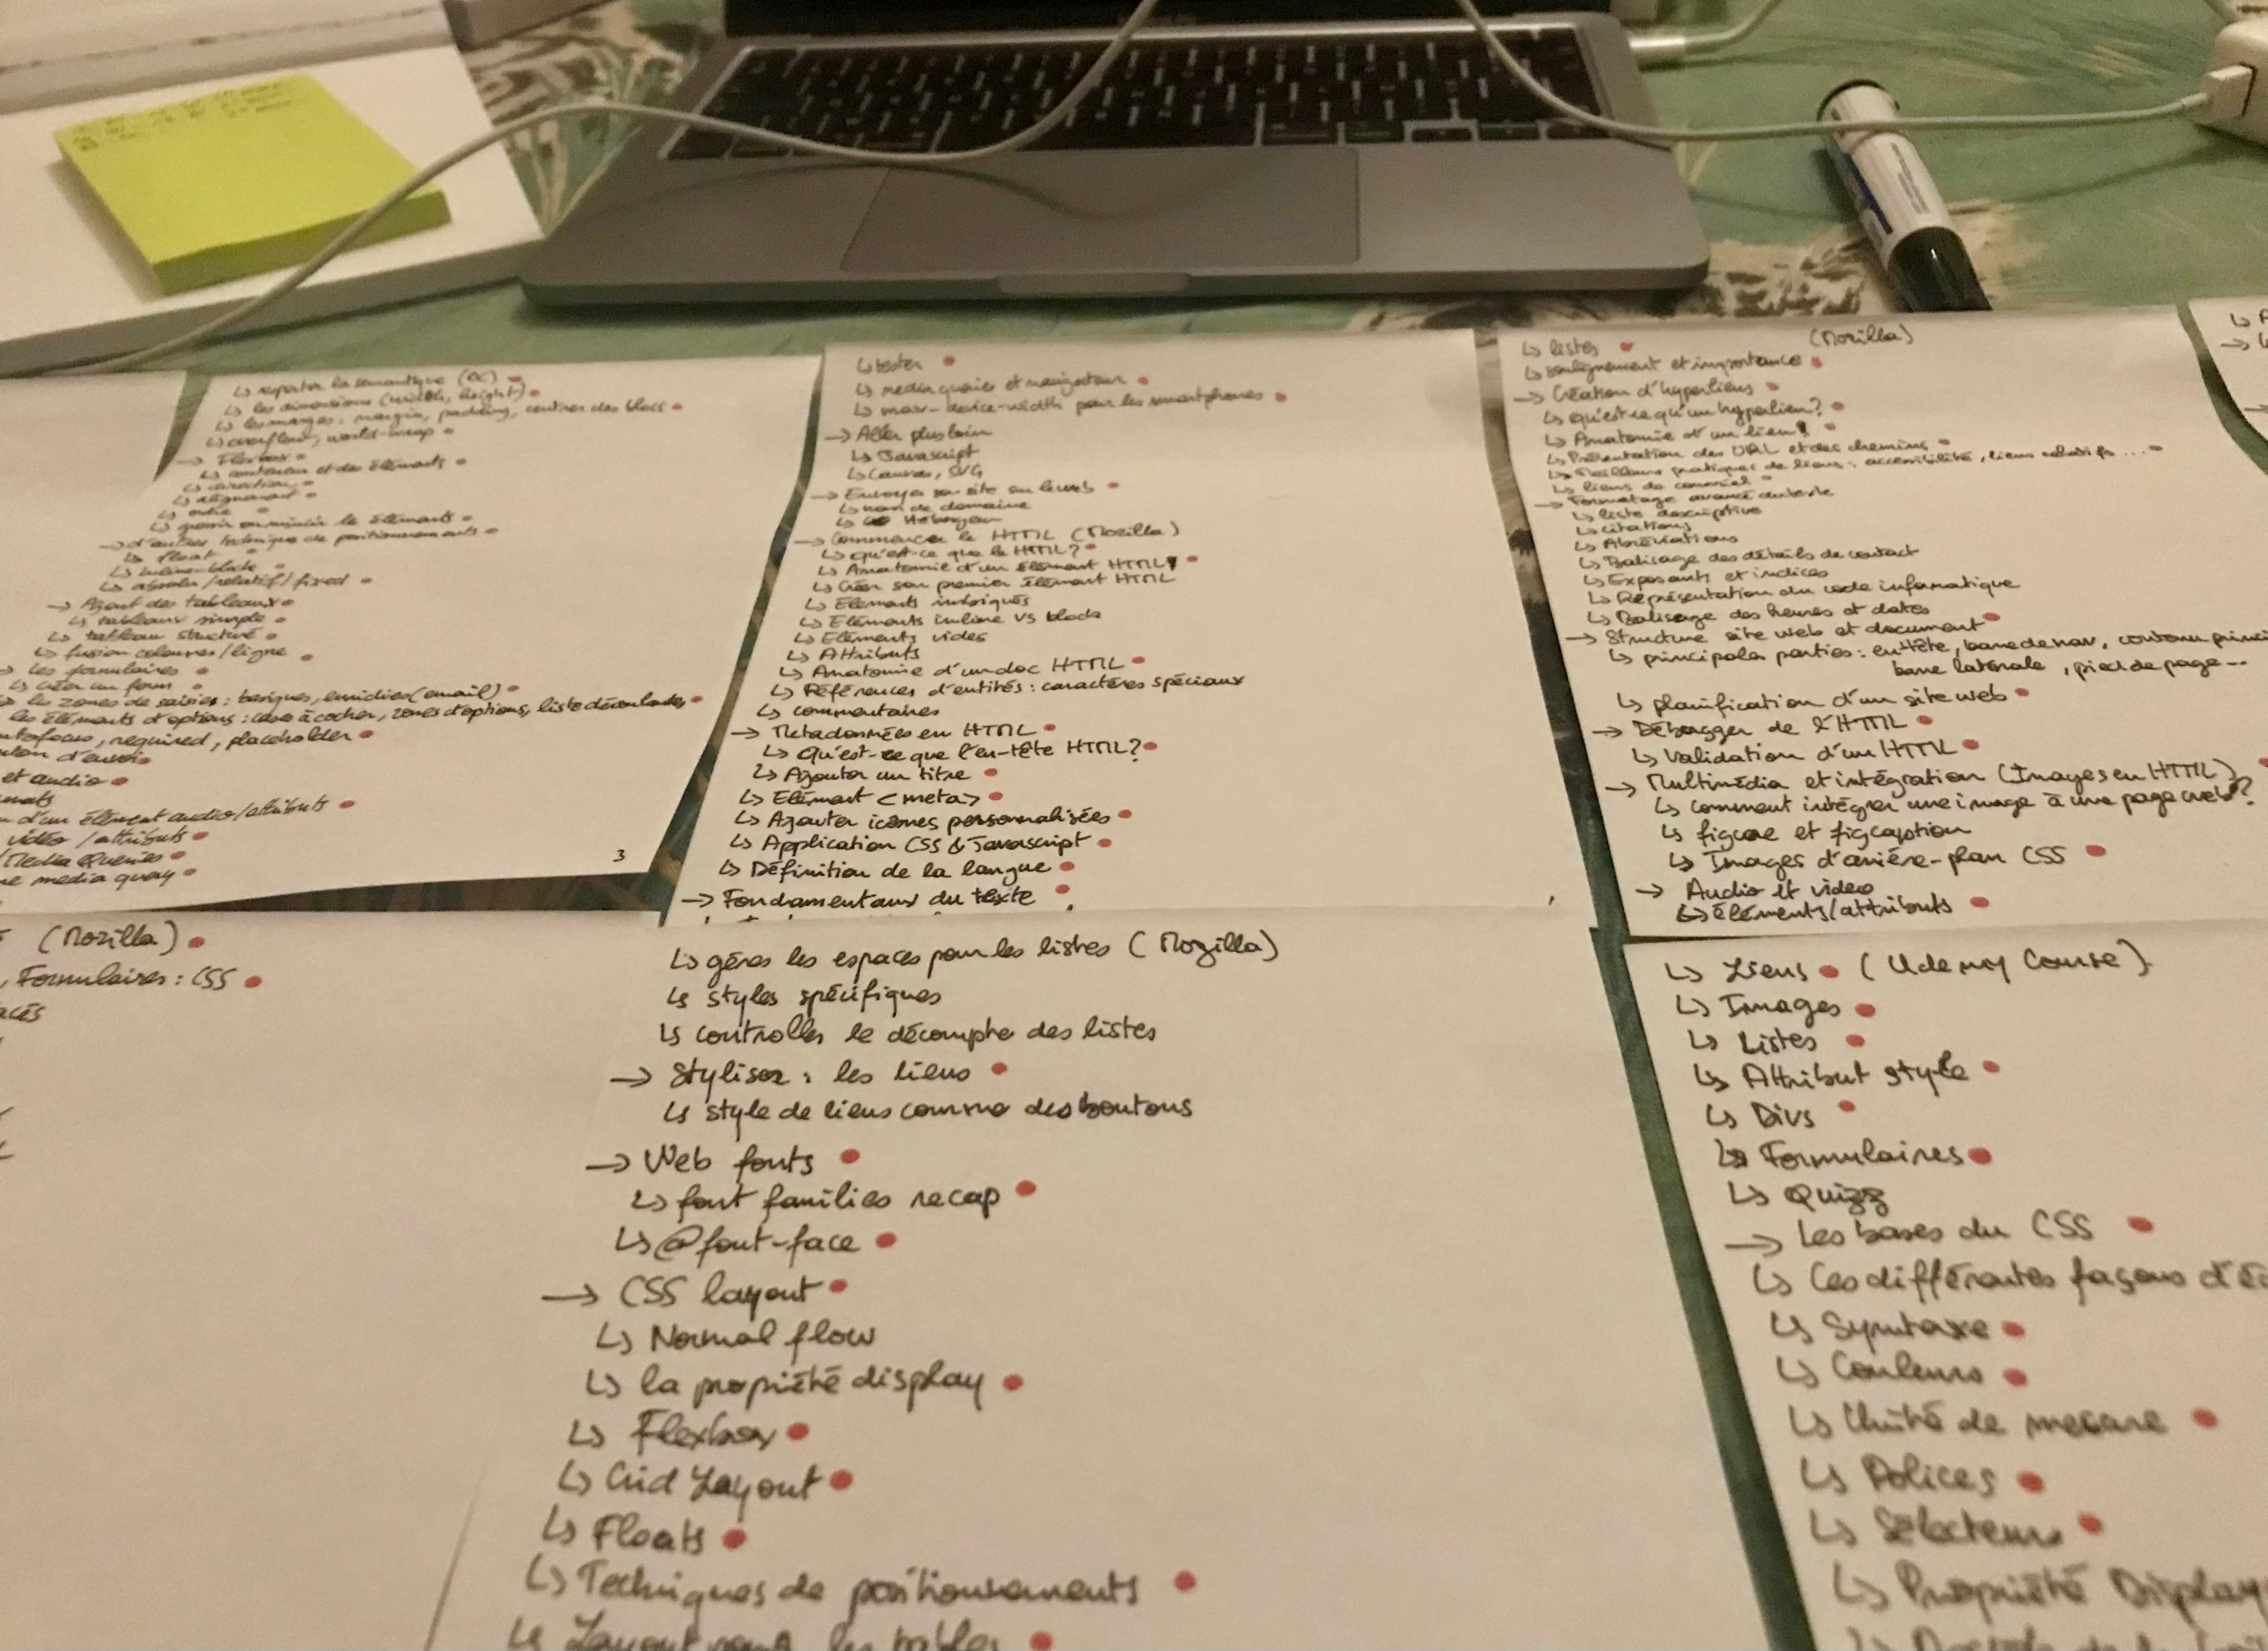 ↳ respecter la sémantique (OC)
↳ les dimensions (width, height)
↳ les marges : margin, padding, centrer des blocs
↳ overflow, world-wrap
→ Flexbox
↳ conteneur et des éléments
↳ direction
↳ alignement
↳ ordre
↳ grossir ou mincir le éléments
→ d'autres technique de positionnements
↳ float
↳ inline-block
↳ absolu/relatif/fixed
→ Ajout des tableaux
↳ tableaux simple
↳ tableau structuré
↳ fusion colonnes/ligne
→ les formulaires
↳ créer un form
↳ les zones de saisies : basiques, enrichies (email)
les éléments d'options : cases à cocher, zones d'options, liste déroulantes
autofocus, required, placeholder
d'envoi
et audio
d'un élément audio/attributs
vidéo /attributs
Media Queries
media query
3
↳ tester
↳ media queries et navigateur
↳ max-device-width pour les smartphones
→ Aller plus loin
↳ Javascript
↳ Canvas, SVG
→ Envoyer son site sur le web
↳ nom de domaine
↳ Hébergeur
→ Commencer le HTML (Mozilla)
↳ Qu'est-ce que le HTML?
↳ Anatomie d'un élément HTML
↳ Créer son premier élément HTML
↳ Eléments imbriqués
↳ Eléments inline vs block
↳ Eléments vides
↳ Attributs
↳ Anatomie d'un doc HTML
↳ Références d'entités : caractères spéciaux
↳ commentaires
→ Métadonnées en HTML
↳ Qu'est-ce que l'en-tête HTML?
↳ Ajouter un titre
↳ Elément <meta>
↳ Ajouter icônes personnalisées
↳ Application CSS & Javascript
↳ Définition de la langue
→ Fondamentaux du texte
(Mozilla)
↳ listes
↳ soulignement et importance
→ Création d'hyperliens
↳ qu'est-ce qu'un hyperlien?
↳ Anatomie d'un lien
↳ Présentation des URL et des chemins
↳ Meilleurs pratiques de liens : accessibilité, liens relatifs ...
↳ liens de courriel
→ Formatage avancé du texte
↳ liste descriptive
↳ citations
↳ Abréviations
↳ Balisage des détails de contact
↳ Exposants et indices
↳ Représentation du code informatique
↳ Balisage des heures et dates
→ Structure site web et document
↳ principales parties : en-tête, barre de nav, contenu
barre latérale, pied de page...
↳ planification d'un site web
→ Débugger de l'HTML
↳ Validation d'un HTML
→ Multimédia et intégration (Images en HTML)
↳ comment intégrer une image à une page web?
↳ figure et figcaption
↳ Images d'arrière-plan CSS
→ Audio et video
↳ éléments/attributs
(Mozilla)
, Formulaires : CSS
↳ gérer les espaces pour les listes (Mozilla)
↳ styles spécifiques
↳ controller le décompte des listes
→ Styliser : les liens
↳ style de liens comme des boutons
→ Web fonts
↳ font families recap
↳ @font-face
→ CSS layout
↳ Normal flow
↳ la propriété display
↳ Flexbox
↳ Grid Layout
↳ Floats
↳ Techniques de positionnements
↳ Layout pour les tables
↳ Liens (Udemy Course)
↳ Images
↳ Listes
↳ Attribut style
↳ Divs
↳ Formulaires
↳ Quizz
→ Les bases du CSS
↳ Les différentes façons
↳ Syntaxe
↳ Couleurs
↳ Unité de mesure
↳ Polices
↳ Sélecteurs
↳ Propriété Display